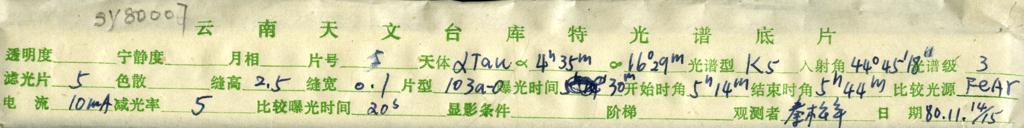 SY80007
云南天文台库特光谱底片
透明度 宁静度 月相 片号 5 天体 αTau ∝ 4h35m ∝ 16°29m 光谱型 K5 入射角 44°45'18" 光谱级 3
滤光片 5 色散 缝高 2.5 缝宽 0.1 片型 103a-O 曝光时间 30m 开始时角 5h14m 结束时角 5h44m 比较光源 FeAr
电流 10mA 减光率 5 比较曝光时间 20s 显影条件 阶梯 观测者 日期 80.11.14/15